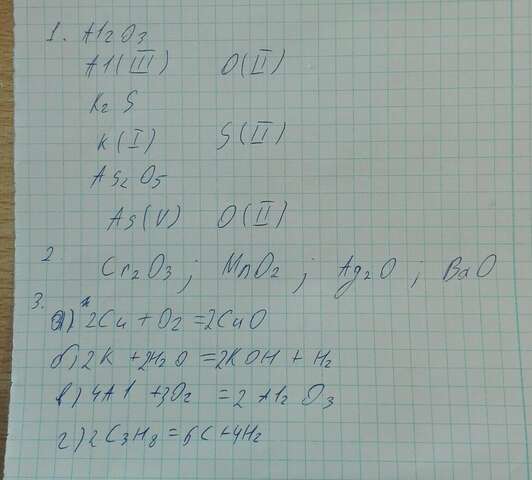 1. Al2O3
Al(III) O(II)
K2 S
K(I) S(II)
As2 O5
As(V) O(II)
2 Cr2O3; MnO2; Ag2O; BaO
3. а) 2Cu + O2 = 2CuO
б) 2K + 2H2O = 2KOH + H2
в) 4Al + 3O2 = 2 Al2 O3
г) 2C3H8 = 6C + 4H2